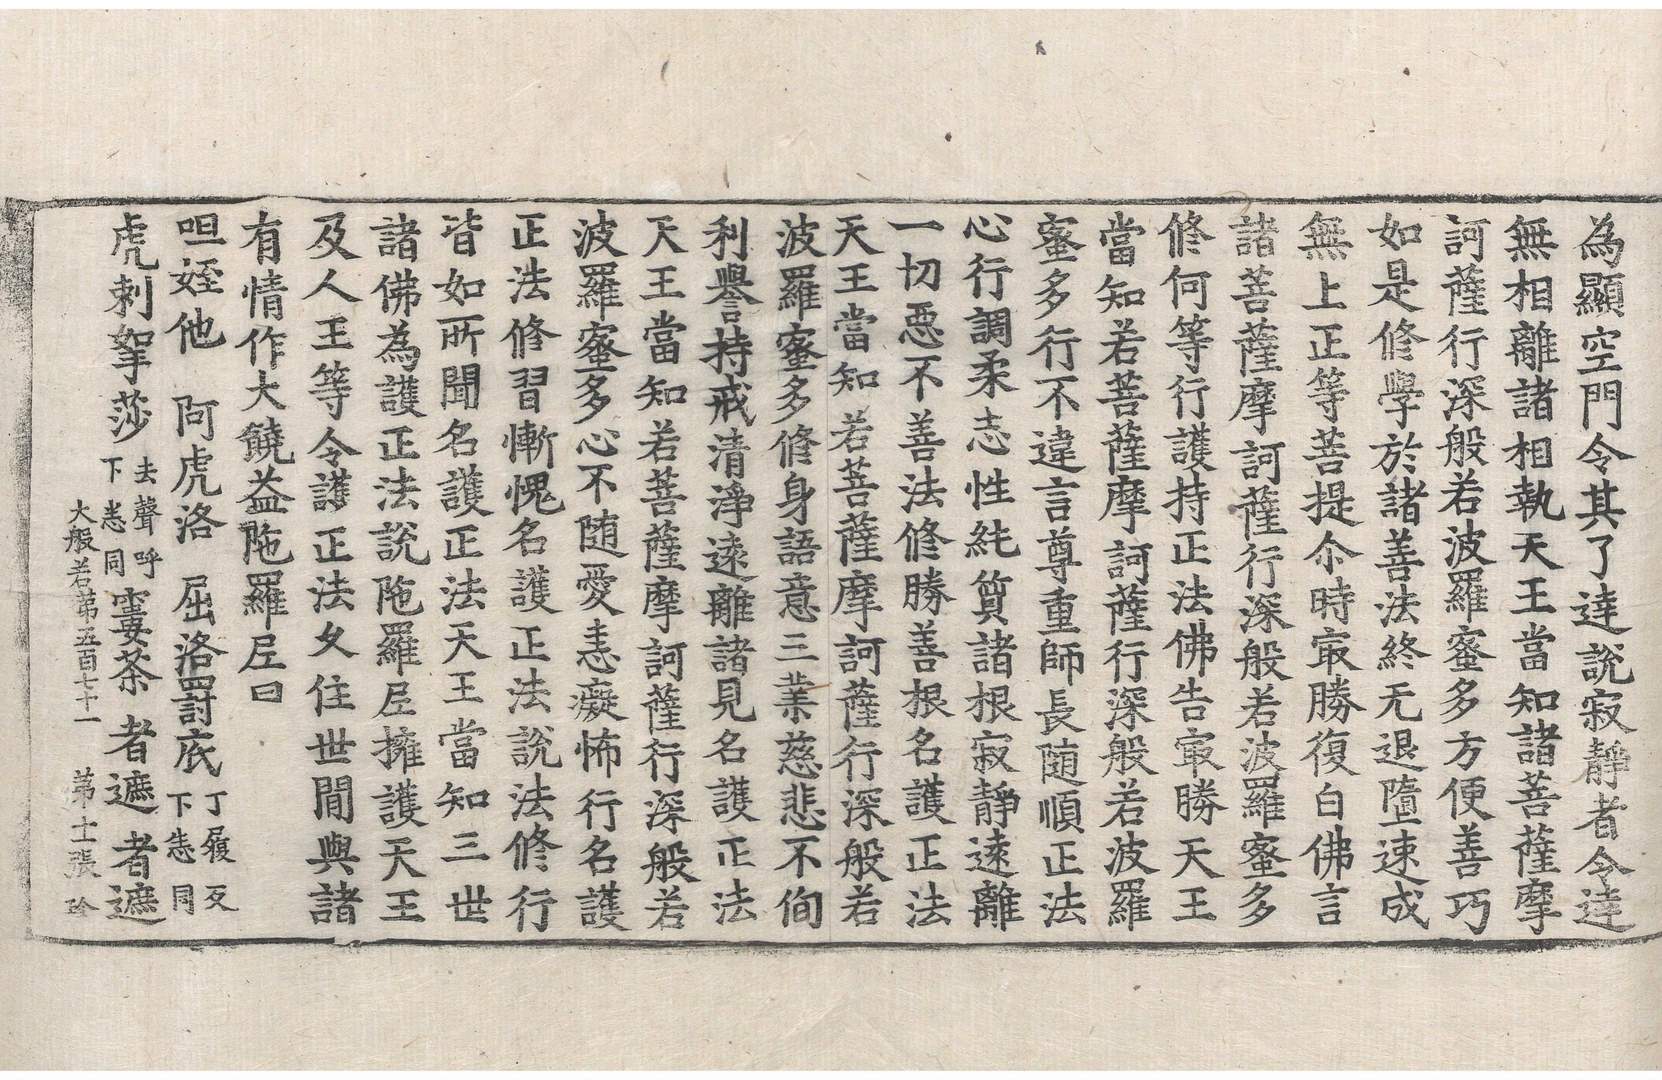 為顯空門令其了達說寂靜者令達
無相離諸相執天王當知諸菩薩摩
訶薩行深般若波羅蜜多方便善巧
如是修學於諸善法終无退墮速成
無上正等菩提尒時㝡勝復白佛言
諸菩薩摩訶薩行深般若波羅蜜多
修何等行護持正法佛告㝡勝天王
當知若菩薩摩訶薩行深般若波羅
蜜多行不違言尊重師長随順正法
心行調柔志性純質諸根寂靜遠離
一切惡不善法修勝善根名護正法
天王當知若菩薩摩訶薩行深般若
波羅蜜多修身語意三業慈悲不徇
利譽持戒清淨遠離諸見名護正法
天王當知若菩薩摩訶薩行深般若
波羅蜜多心不随愛恚癡怖行名護
正法修習慚愧名護正法說法修行
皆如所聞名護正法天王當知三世
諸佛為護正法說陁羅尼擁護天王
及人王等令護正法久住世間與諸
有情作大饒益陁羅尼曰
呾姪他 阿虎洛 屈洛罸底丁履反下悉同
虎剌挐莎去聲呼下悉同寠荼 者遮者遮
大般若第五百七十一 第十二張 珍